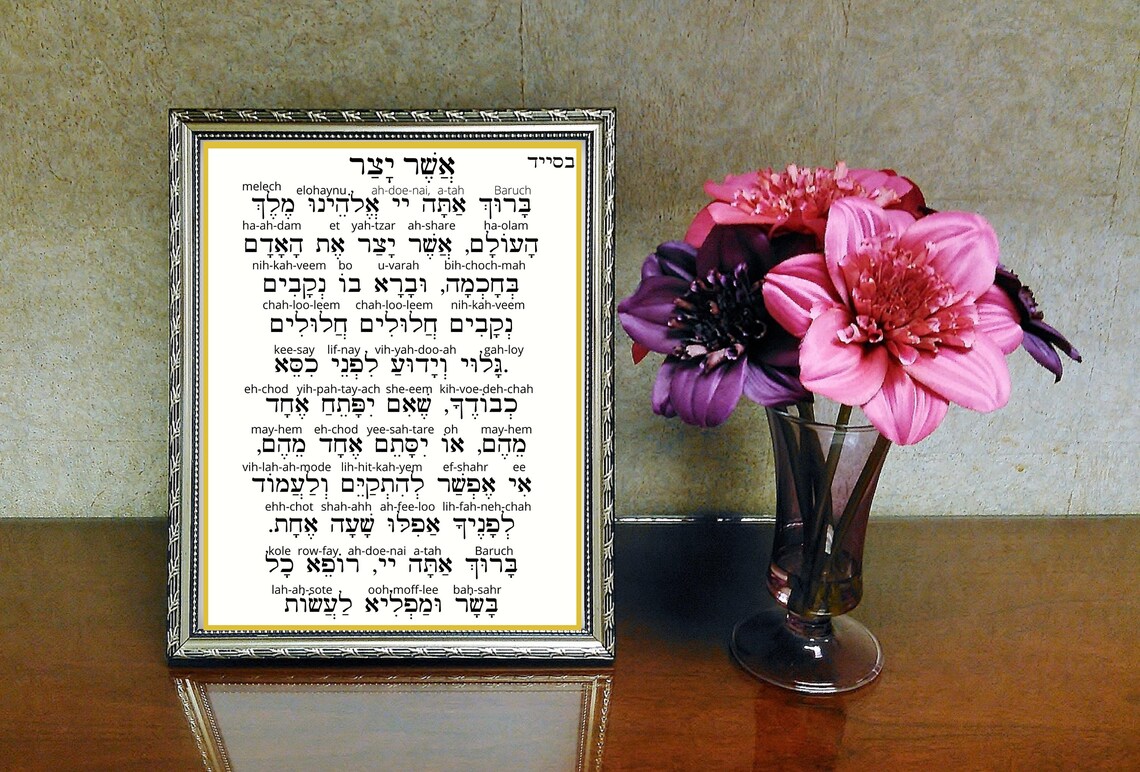 בסייד
אֲשֶׁר יָצַר
melech elohaynu, ah-doe-nai, a-tah Baruch
בָּרוּךְ אַתָּה יי אֱלֹהֵינוּ מֶלֶךְ
ha-ah-dam et yah-tzar ah-share ha-olam
הָעוֹלָם, אֲשֶׁר יָצַר אֶת הָאָדָם
nih-kah-veem bo u-varah bih-choch-mah
בְּחָכְמָה, וּבָרָא בוֹ נְקָבִים
chah-loo-leem chah-loo-leem nih-kah-veem
נְקָבִים חֲלוּלִים חֲלוּלִים
kee-say lif-nay vih-yah-doo-ah gah-loy
.גָּלוּי וְיָדוּעַ לִפְנֵי כִסֵּא
eh-chod yih-pah-tay-ach she-eem kih-voe-deh-chah
כְבוֹדֶךָ, שֶׁאִם יִפָּתֵחַ אֶחָד
may-hem eh-chod yee-sah-tare oh may-hem
מֵהֶם, אוֹ יִסָּתֵם אֶחָד מֵהֶם,
vih-lah-ah-mode lih-hit-kah-yem ef-shahr ee
אִי אֶפְשַׁר לְהִתְקַיֵּם וְלַעֲמוֹד
ehh-chot shah-ahh ah-fee-loo lih-fah-neh-chah
לְפָנֶיךָ אַפִלּוּ שָׁעָה אֶחָת.
kole row-fay, ah-doe-nai a-tah Baruch
בָּרוּךְ אַתָּה יי, רוֹפֵא כָל
lah-ah-sote ooh-moff-lee bah-sahr
בָּשָר וּמַפְלִיא לַעֲשׂוֹת